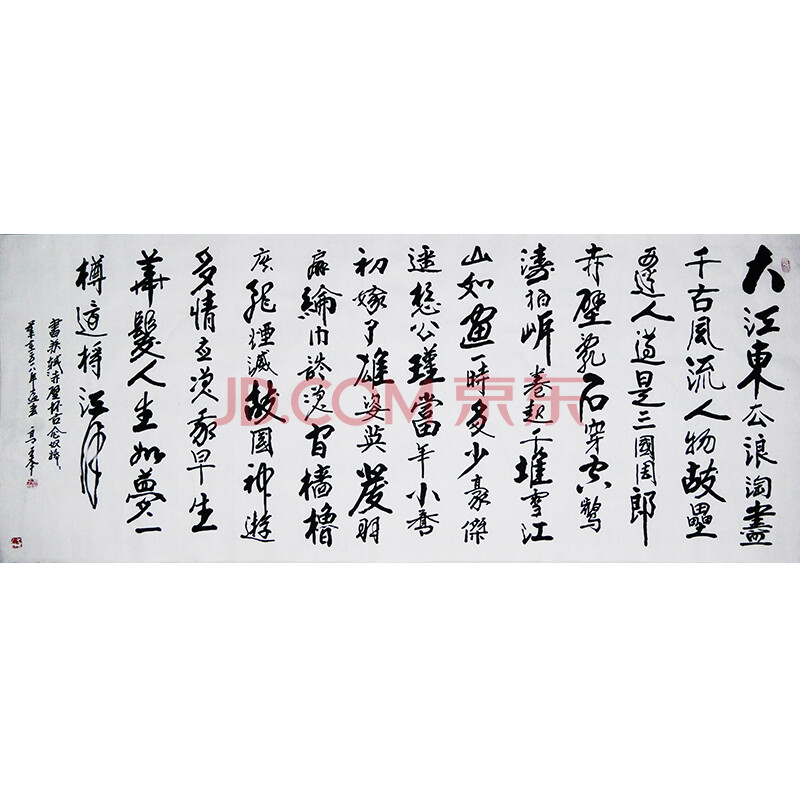 大江東去浪淘盡
千古風流人物故壘
西邊人道是三國周郎
赤壁亂石穿空驚
濤拍岸卷起千堆雪江
山如畫一時多少豪傑
遙想公瑾當年小喬
初嫁了雄姿英發羽
扇綸巾談笑間檣櫓
灰飛煙滅故國神遊
多情應笑我早生
華髮人生如夢一
樽還酹江月
書蘇軾赤壁懷古念奴嬌
JD.COM 京东